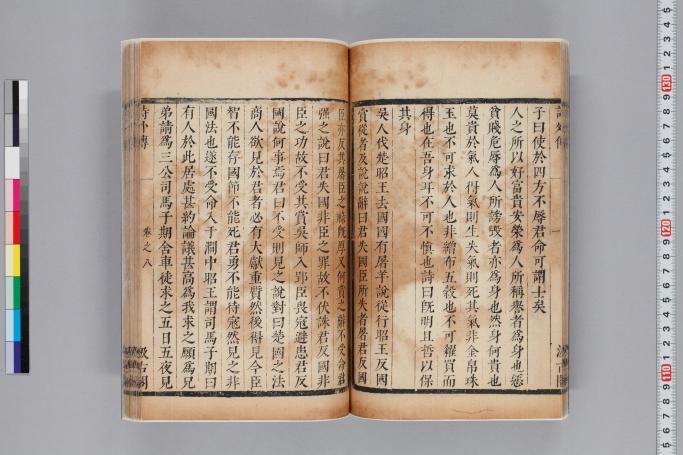 子曰使於四方不辱君命可謂士矣
人之所以好富貴安榮爲人所稱譽者爲身也惡
貧賤危辱爲人所謗毀者亦爲身也然身何貴也
莫貴於氣人得氣則生失氣則死其氣非金帛珠
玉也不可求於人也非繒布五穀也不可糴買而
得也在吾身耳不可不慎也詩曰旣明且哲以保
其身
吳人伐楚昭王去國國有屠羊說從行昭王反國
賞從者及說說辭曰君失國臣所失者屠君反國
臣亦反其屠臣之祿旣厚又何賞之辭不受命君
强之說曰君失國非臣之罪故不伏誅君反國非
臣之功故不受其賞吳師入郢臣畏寇避患君反
國說何事焉君曰不受則見之說對曰楚國之法
商人欲見於君者必有大獻重質然後得見今臣
智不能存國節不能死君勇不能待寇然見之非
國法也遂不受命入于澗中昭王謂司馬子期曰
有人於此居處甚約論議甚高爲我求之願爲兄
弟請爲三公司馬子期舍車徒求之五日五夜見
詩外傳 卷之八 汲古閣
130
120
110